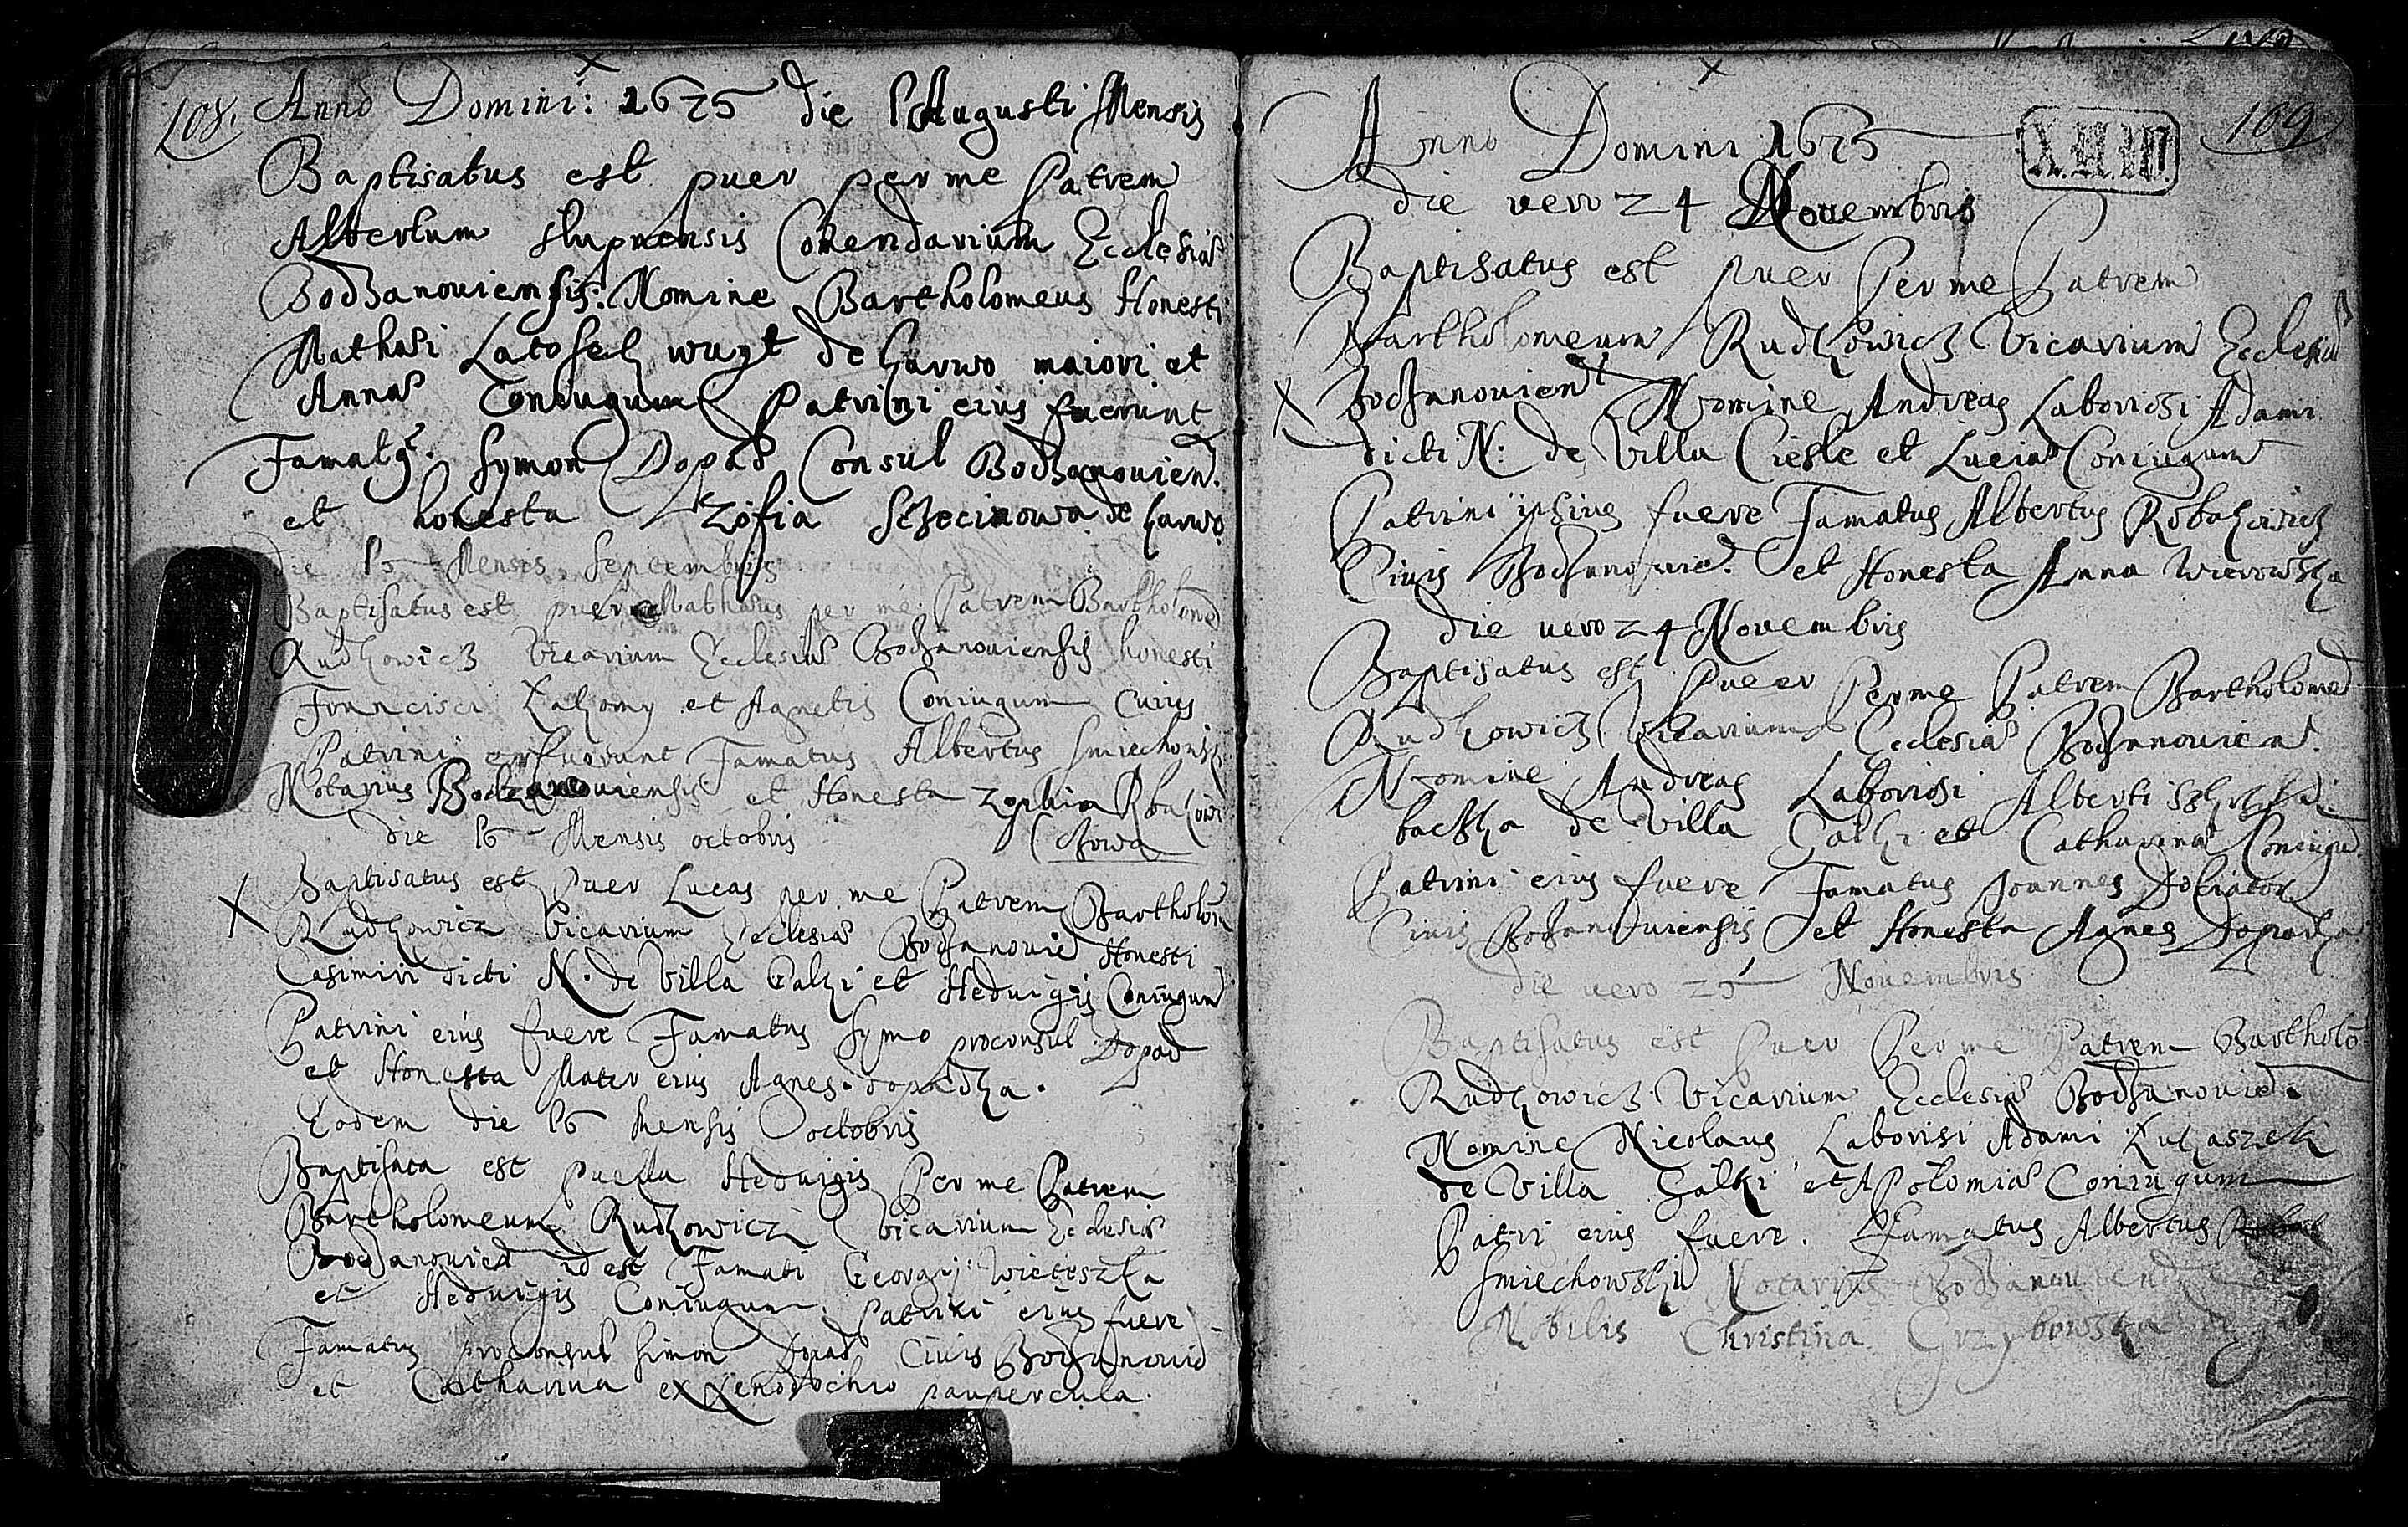 108. Anno Domini: 1675 die Augusti Mensis
Baptisatus est puer per me Patrem
Albertum slupnensis Comendarium Ecclesiæ
Bodzanouiensis: Nomine Bartholomeus Honesti
Mathæi wuyt de maiori et
Annæ Coniugum Patrini eius fuerunt
Famatg. Symon Dopad Consul Bodzanouien.
et honesta Zofia de
die 15 Mensis Septembris
Baptisatus est puer Mathæus per me Patrem Bartholome
Rudkowicz Vicarium Ecclesiæ Bodzanouiensis honesti
Francisci et Agnetis Coniugum cuius
Patrini fuerunt Famatus Albertus Smiechowsk
Notarius Bodzanouiensis et Honesta Zophia
die 16 Mensis octobris
Baptisatus est Puer Lucas per me Patrem Bartholom
Rudkowicz Vicarium Ecclesiæ Bodzanouie Honesti
Casimiri dicti N. de Villa Galki et Heduigis Coniugum
Patrini eius fuere Famatus Symo proconsul Dopad
et Honesta Mater eius Agnes dopadka.
Eodem die 16 Mensis octobris
Baptisata est puella Heduigis Per me Patrem
Bartholomeum Rudkowicz Vicarium Ecclesiæ
Bodzanouien id est Famati Georgij Wieteszka
et Heduigis Coniugum. Patrini eius fuere
Famatus proconsul Simon Dopad Ciuis Bodzanouie
et Catharina ex Xenodochio paupercula.
109
Anno Domini 1675
die vero 24 Nouembris
Baptisatus est puer Per me Patrem
Bartholomeum Rudkowicz Vicarium Ecclesiæ
Bodzanouien Nomine Andreas Laboriosi Adami
dicti N: de Villa Ciesle et Luciæ Coniugum
Patrini ipsius fuere Famatus Albertus Robakowicz
Ciuis Bodzanouie. et Honesta Anna
die vero 24 Nouembris
Baptisatus est Puer Per me Patrem Bartholome
Rudkowicz Vicarium Ecclesiæ Bodzanouien.
Nomine Andreas Laboriosi Alberti
de Villa Galki et Catharinæ Coniugu
Patrini eius fuere Famatus Joannes Doliator
Ciuis Bodzanouiensis et Honesta Agnes Dopadka
die vero 25 Nouembris
Baptisatus est Puer Per me Patrem Bartholo
Rudkowicz Vicarium Ecclesiæ Bodzanouie.
Nomine Nicolaus Laboriosi Adami Łukaszek
de Villa Galki et Apolomiæ Coniugum
Patri eius fuere. Famatus Albertus
Smiechowski Notarius Bodzanouiend et
Nobilis Christina Grzybowska